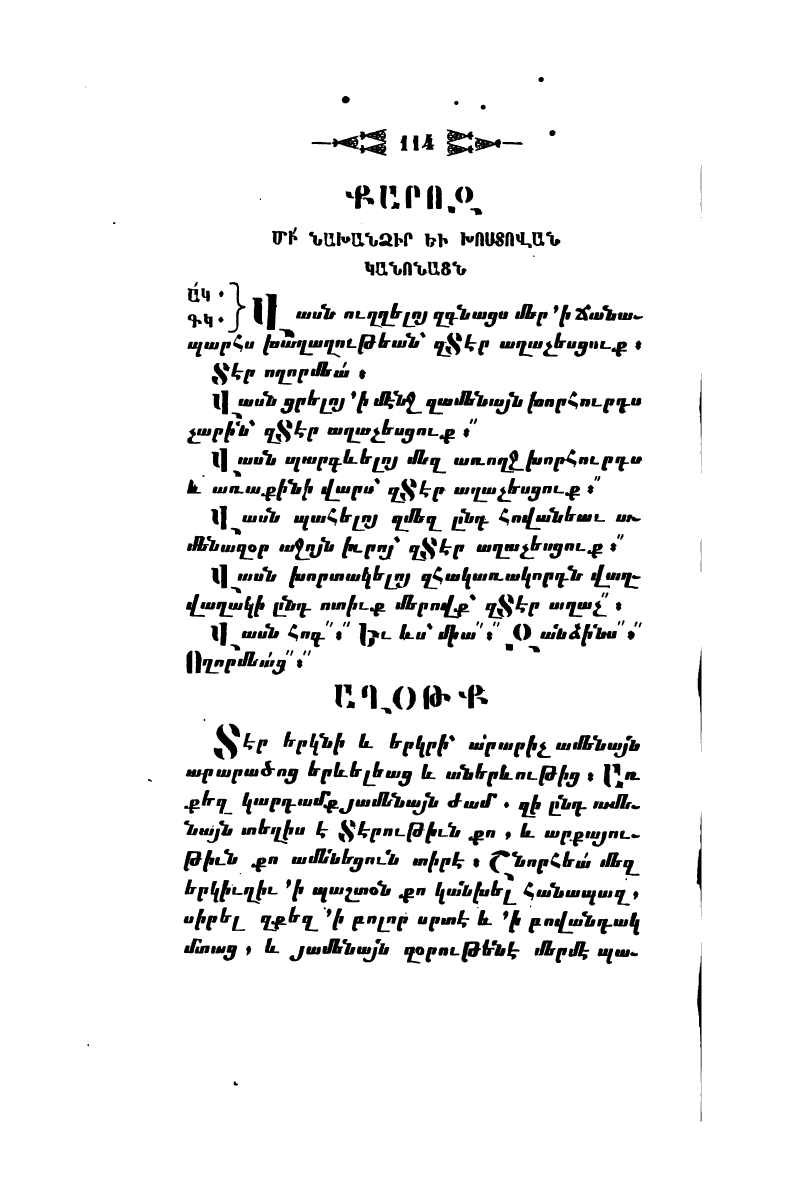 114
ՔԱՐՈԶ
ՄԻ՛ ՆԱԽԱՆՁԻՐ ԵՒ ԽՈՍՏՈՎԱՆ
ԿԱՆՈՆԱՑՆ
ԱԿ.
ԳԿ.
Վասն ուղղելոյ զգնացս մեր ՚ի ճանա-
պարհս խաղաղութեան՝ զՏէր աղաչեսցուք ։
Տէր ողորմեա՛ ։
Վասն ցրելոյ ՚ի մէնջ զամենայն խորհուրդս
չարին՝ զՏէր աղաչեսցուք ։՛՛
Վասն պարգևելոյ մեզ առողջ խորհուրդս
և առաքինի վարս՝ զՏէր աղաչեսցուք ։՛՛
Վասն պահելոյ զմեզ ընդ հովանեաւ ա-
մենազօր աջոյն իւրոյ՝ զՏէր աղաչեսցուք ։՛՛
Վասն խորտակելոյ զհակառակորդն վաղ-
վաղակի ընդ ոտիւք մերովք՝ զՏէր աղաչ՛՛ ։
Վասն հոգ՛՛ ։՛՛ Եւ ևս՝ միա՛՛ ։՛՛ Զանձինս՛՛ ։՛՛
Ողորմեա՛ց՛՛ ։՛՛
ԱՂՕԹՔ
Տէր երկնի և երկրի՝ արարիչ ամենայն
արարածոց երևելեաց և աներևութից ։ Առ
քեզ կարդամք յամենայն ժամ . զի ընդ ամե-
նայն տեղիս է Տէրութիւն քո , և արքայու-
թիւն քո ամենեցուն տիրէ ։ Շնորհեա՛ մեզ
երկիւղիւ ՚ի պաշտօն քո կանխել հանապազ ,
սիրել զքեզ ՚ի բոլոր սրտէ և ՚ի բովանդակ
մտաց , և յամենայն զօրութենէ մերմէ պա-